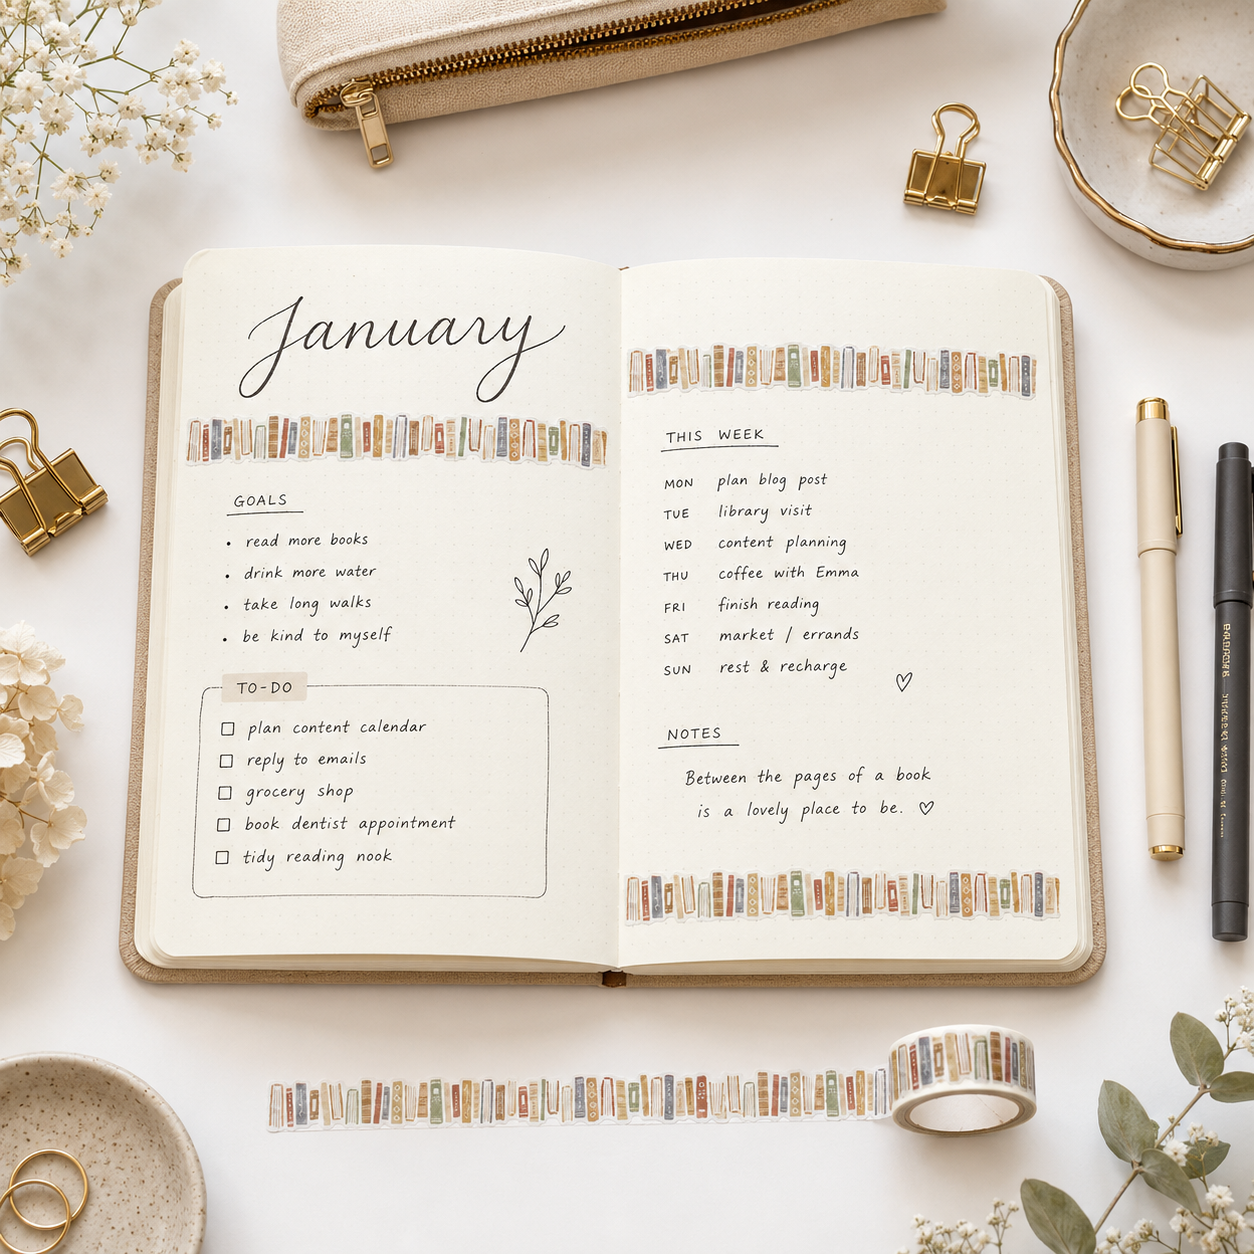 January
GOALS
• read more books
• drink more water
• take long walks
• be kind to myself
TO-DO
☐ plan content calendar
☐ reply to emails
☐ grocery shop
☐ book dentist appointment
☐ tidy reading nook
THIS WEEK
MON plan blog post
TUE library visit
WED content planning
THU coffee with Emma
FRI finish reading
SAT market / errands
SUN rest & recharge
NOTES
Between the pages of a book
is a lovely place to be. ♡